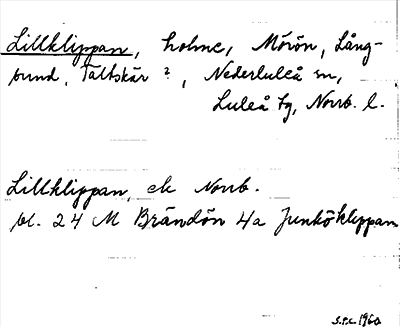 Lillklippan, holme, Mörön, Lång-
sund, Tältskär ?, Nederluleå sn,
Luleå tg, Norrb. l.
Lillklippan, ek Norrb.
bl. 24 M Brändön 4a Junköklippan
S.P.C. 1960